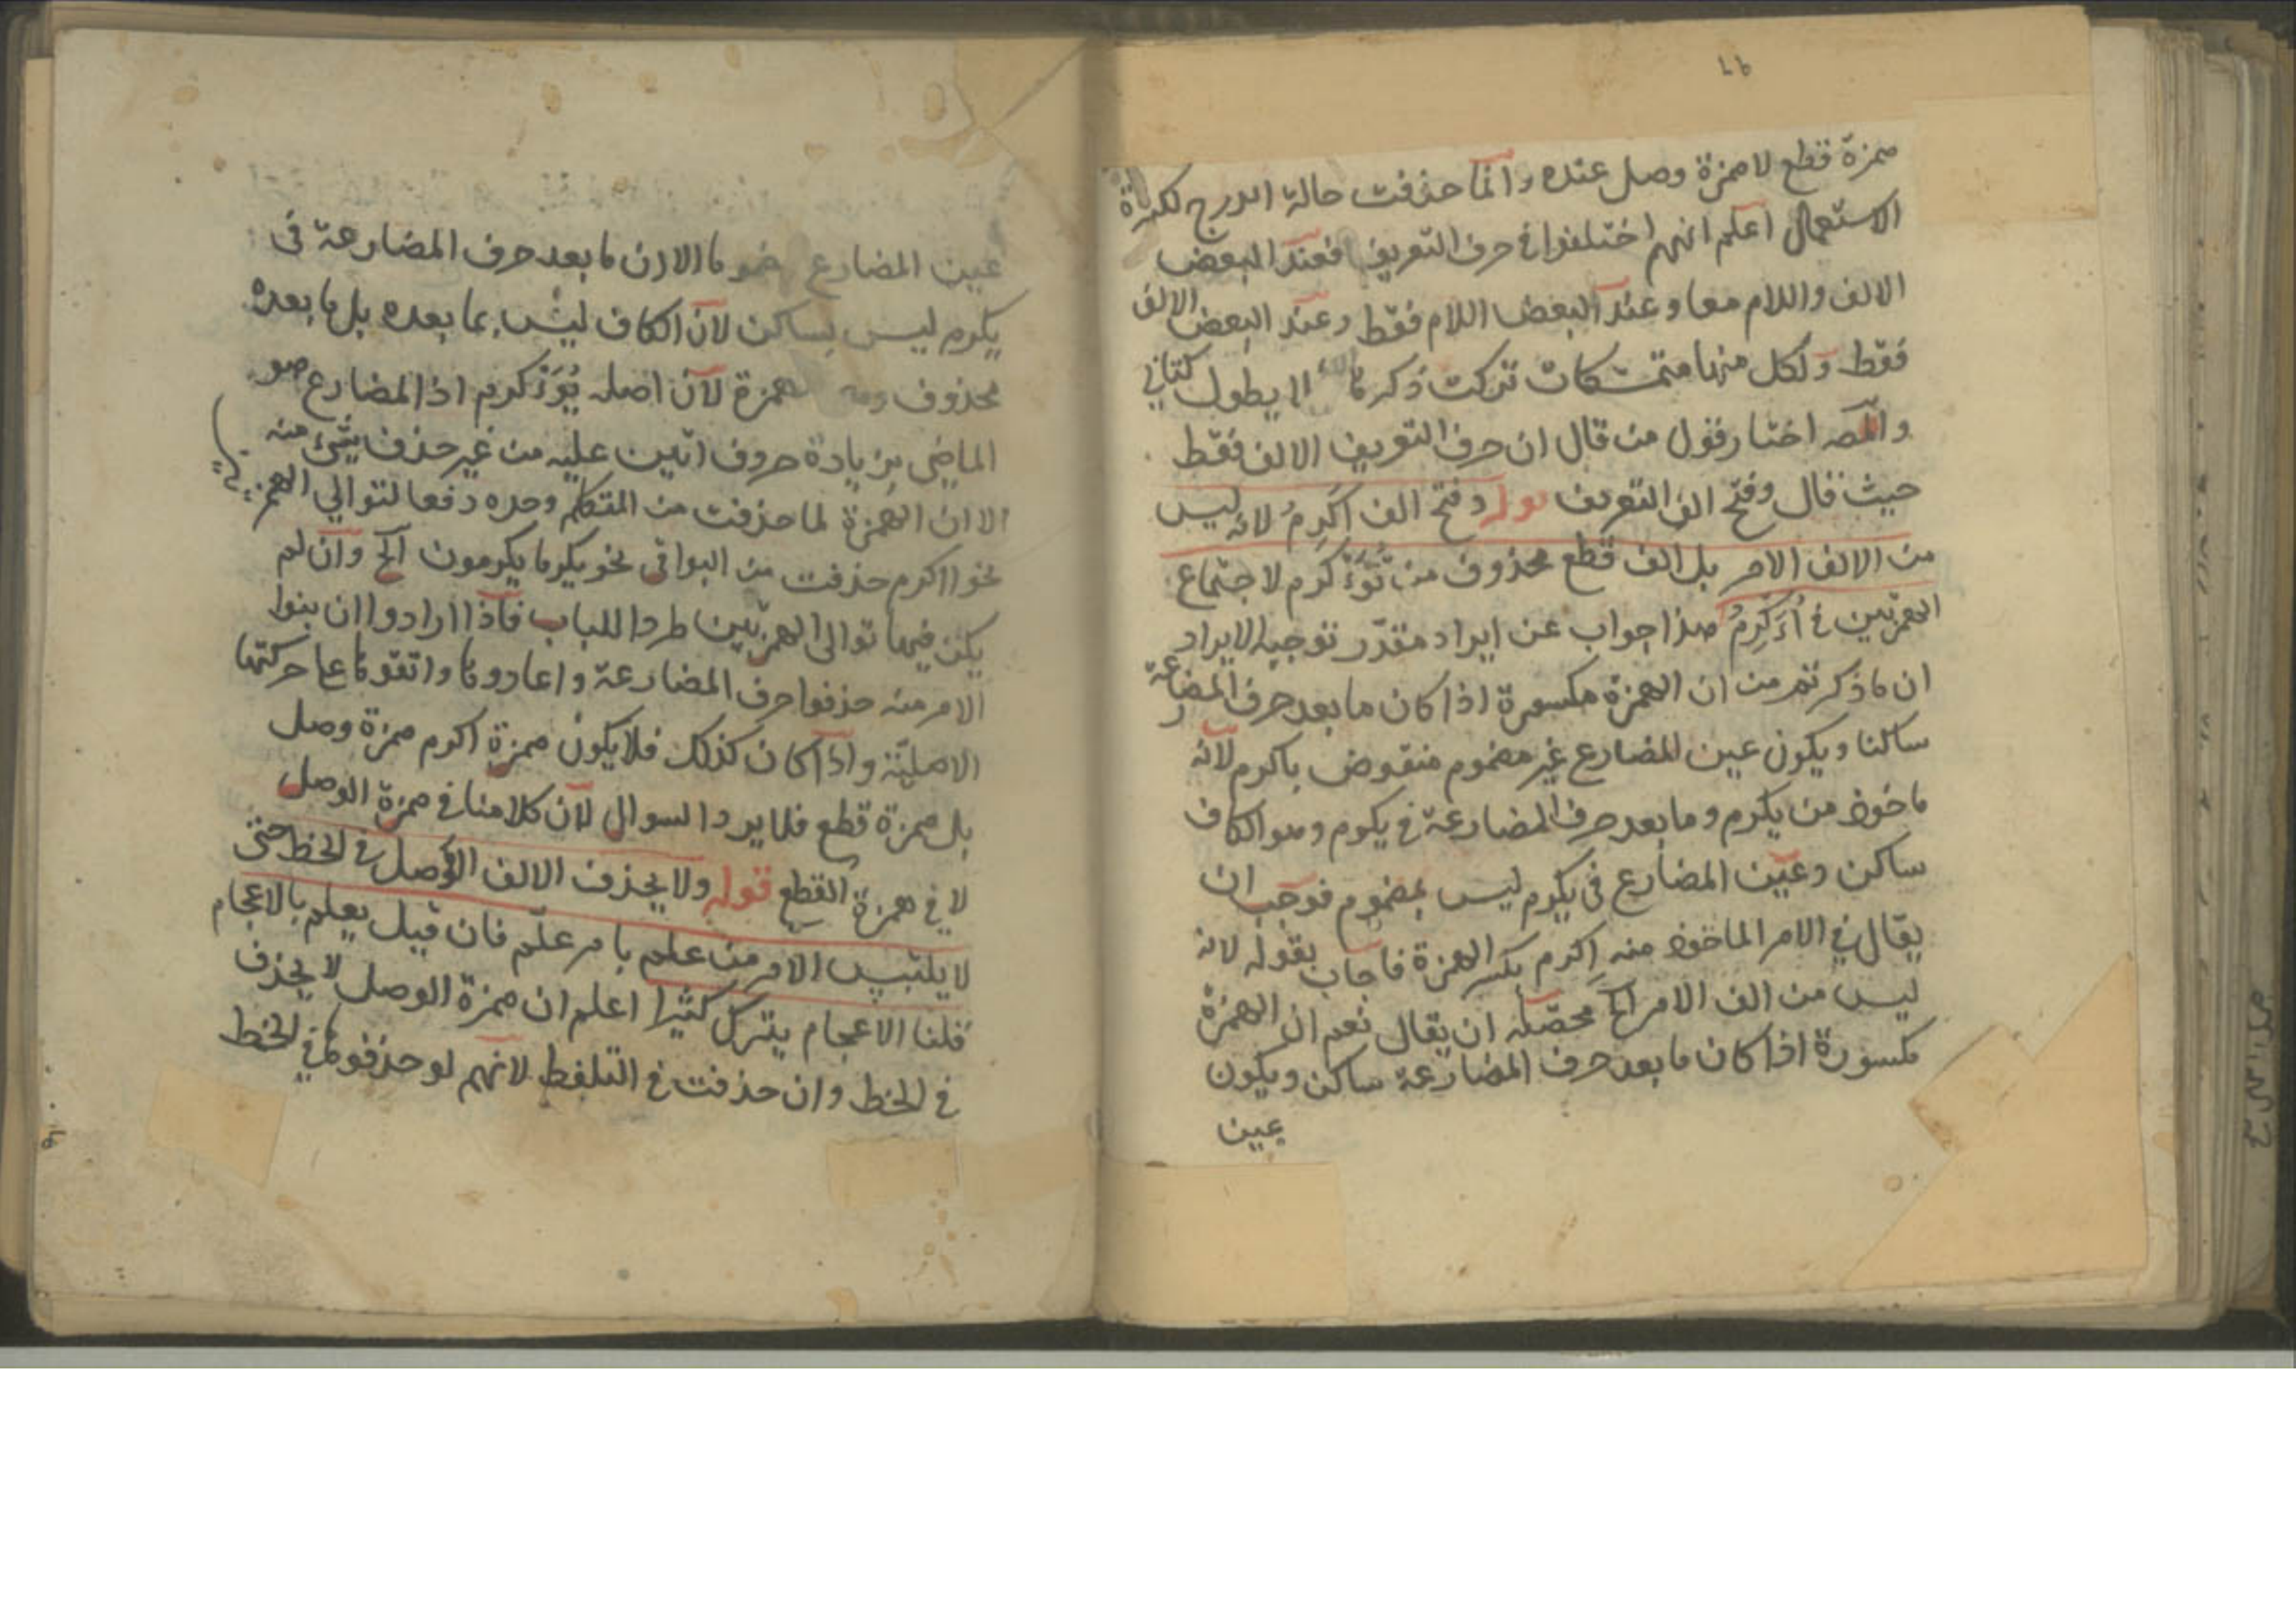 همزة قطع لا همزة وصل عنده وانما حذفت حالة الدرج لكثرة
الاستعمال اعلم انهم اختلفوا في حرف التعريف فعند البعض
الالف واللام معا وعند البعض اللام فقط وعند البعض الالف
فقط ولكل منها متمسكات تركت ذكرها لئلا يطول كتابي
والمصـ اختار قول من قال ان حرف التعريف الالف فقط
حيث قال وفتح الف التعريف قوله وفتح الف اَكرِمُ لانه ليس
من الالف الامر بل الف قطع محذوف من تُؤَكرم لاجتماع
الهمزتين في أُءَكرِمُ هذا جواب عن ايراد مقدّر توجيه الايراد
ان ما ذكرتم من ان الهمزة مكسورة اذا كان ما بعد حرف المضارعة
ساكنا ويكون عين المضارع غير مضموم منقوض باكرم لانه
ماخوذ من يكرم وما بعد حرف المضارعة في يكرم وهو الكاف
ساكن وعين المضارع في يكرم ليس بمضموم فوجب ان
يقال في الامر الماخوذ منه اكرم بكسر الهمزة فاجاب بقوله لانه
ليس من الف الامر الخ محصّله ان يقال نعم ان الهمزة
مكسورة اذا كان ما بعد حرف المضارعة ساكن ويكون
عين
عين المضارع مضموما الا ان ما بعد حرف المضارعة في
يكرم ليس بساكن لان الكاف ليس بما بعده بل ما بعده
محذوف وهو همزة لان اصله يُؤَكرم اذ المضارع هو
الماضي بزيادة حروف اتين عليه من غير حذف شئ منه
الا ان الهمزة لما حذفت من المتكلم وحده دفعا لتوالي الهمزتين
نحو ااكرم حذفت من البواقي نحو يكرما يكرمون الخ وان لم
يكن فيها توالى الهمزتين طردا للباب فاذا ارادوا ان بنوا
الامر منه حذفوا حرف المضارعة واعادوها واتقوها على حركتها
الاصليّة واذا كان كذلك فلا يكون همزة اكرم همزة وصل
بل همزة قطع فلا يرد السوال لان كلامنا في همزة الوصل
لا في همزة القطع قوله ولا يحذف الالف الوصل في الخط حتى
لا يلتبس الامر من علم بامر علّم فان قيل يعلم بالاعجام
قلنا الاعجام يترك كثيرا اعلم ان همزة الوصل لا يحذف
في الخط وان حذفت في التلفظ لانهم لو حذفوها في الخط